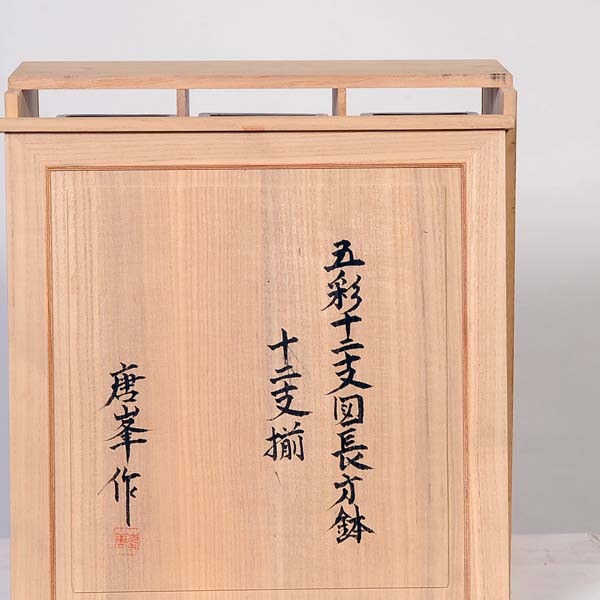 五彩十二支図長方鉢
十二支揃
唐峯作